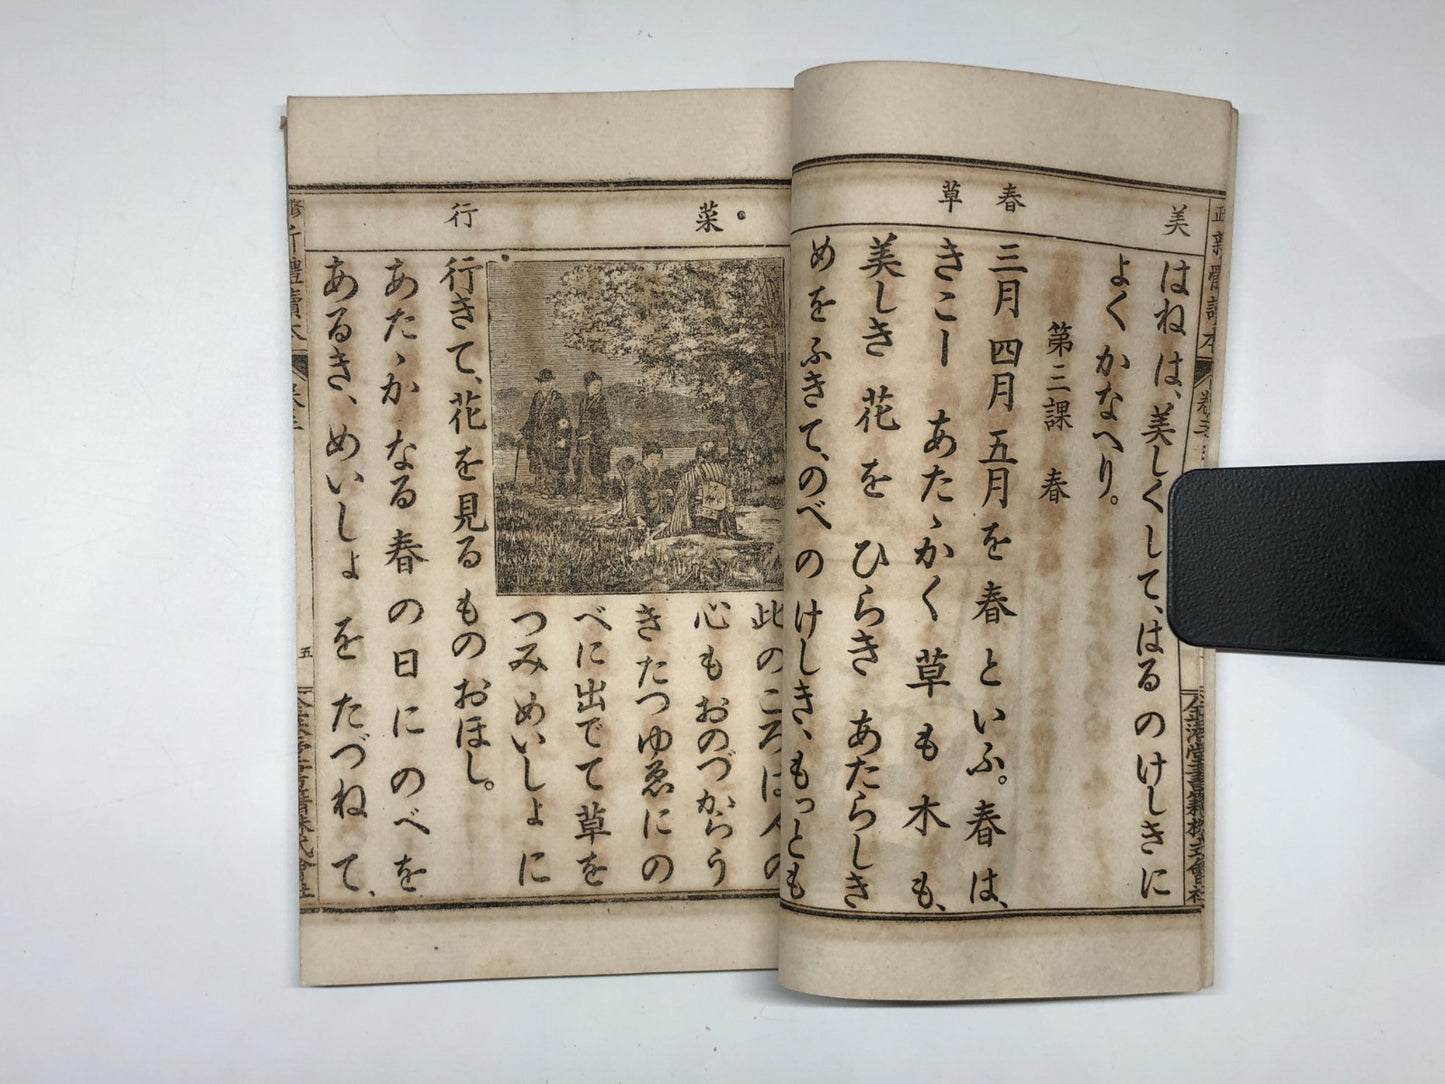 美
春
草
はねは、美しくして、はるのけしきに
よくかなへり。
第三課 春
三月四月五月を春といふ。春は、
きこーあたゝかく草も木も、
美しき花をひらきあたらしき
めをふきて、のべのけしき、もっとも
菜
行
此のころは人の
心もおのづからう
きたつゆゑにの
べに出でて草を
つみめいしょに
行きて、花を見るものおほし。
あたゝかなる春の日にのべを
あるき、めいしょをたづねて、
新體讀本
五